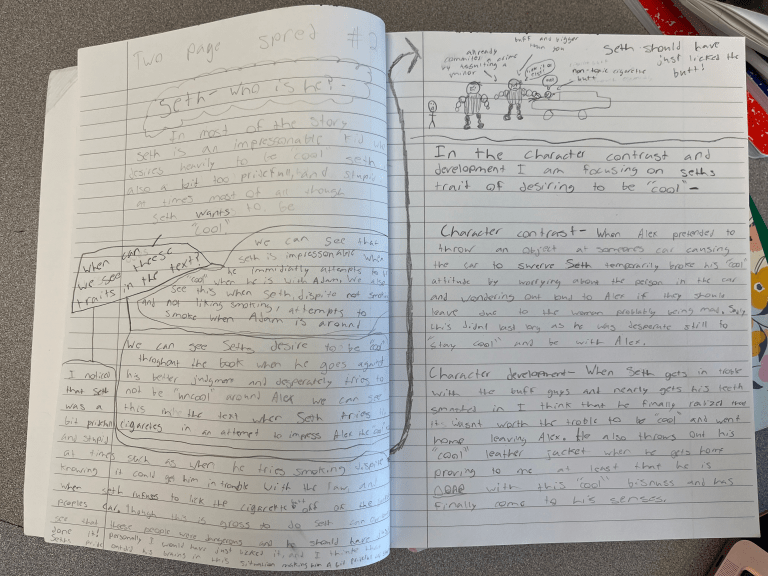 Two page spred #2
Seth - who is he? -
In most of the story
seth is an impressonable kid who
desires heavily to be "cool" seth
also a bit too pridefull, and stupid
at times most of all though
seth wants to be
"cool"
When can
we see theese
traits in the text?
we can see that
seth is impressonable when
he immidiatly attempts to
"cool" when he is with Adam. We also
see this when Seth dispite not
and not liking smoking, attempts to
smoke when Adam is around
We can see Seths desire to be "cool"
throughout the book when he goes against
his better judgment and desperately tries to
not be "uncool" around Alex we can see
this in the text when Seth tries
cigaretes in an attempt to impress Alex the
I noticed
that Seth
was a
bit pridefull
and stupid
at times such as when he tries smoking dispite
knowing it could get him in trouble with the law, and
when seth refuses to lick the cigarette butt off of the
peoples car. Though this is gross to do Seth can
see that these people were dangerous and he should have
done it! personally I would have just licked it, and I think
Seths pride outdid his brains in this situation making him a bit pridefull
already
commited a crime
by assulting a
minor
buff and bigger
than you
non-toxic cigarette
butt
Seth should have
just licked the
butt!
In the character contrast and
development I am focusing on seths
trait of desiring to be "cool" -
Character contrast - When Alex pretended to
throw an object at someones car causing
the car to swerve Seth temporarily broke his "cool"
attitude by worrying about the person in the car
and wondering out loud to Alex if they should
leave due to the woman probably being mad. Sadly
this didnt last long as he was desperate still to
"stay cool" and be with Alex.
Character development - When Seth gets in trouble
with the buff guys and nearly gets his teeth
smashed in I think that he finally realized
it wasnt worth the troble to be "cool" and went
home leaving Alex. He also throws out his
"cool" leather jacket when he gets home
proving to me at least that he is
DONE with this "cool" bisnuss and has
finally come to his senses.